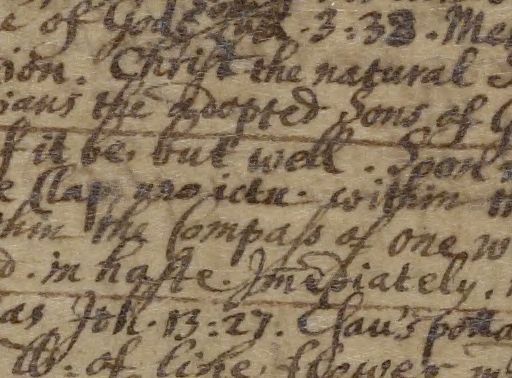 e of God . 3:38. Me
ion. Christ the natural S
ians the adopted Sons of G
f it be, but well. Soon
e Clap, mo ictu. within
thin the Compass of one w
d. in haste. Immediately.
as Joh. 13:27. Clau's
ll: of line, flower